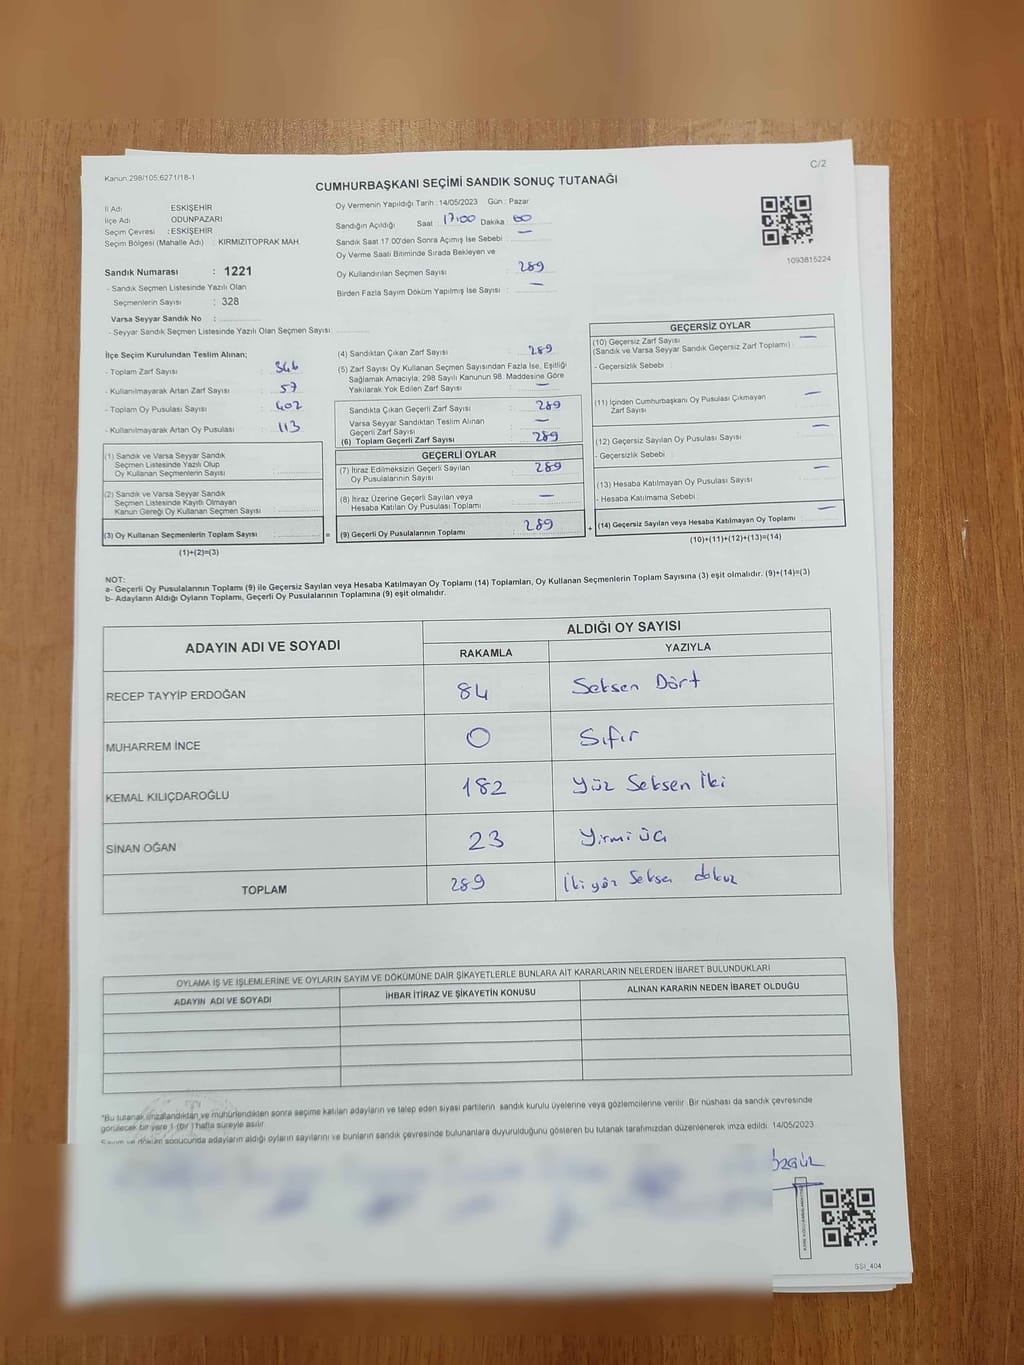 C/2
Kanun:298/105,6271/18-1
CUMHURBAŞKANI SEÇİMİ SANDIK SONUÇ TUTANAĞI
İl Adı : ESKİŞEHİR
İlçe Adı : ODUNPAZARI
Seçim Çevresi : ESKİŞEHİR
Seçim Bölgesi (Mahalle Adı) : KIRMIZITOPRAK MAH.
Sandık Numarası : 1221
- Sandık Seçmen Listesinde Yazılı Olan
Seçmenlerin Sayısı : 328
Varsa Seyyar Sandık No :
- Seyyar Sandık Seçmen Listesinde Yazılı Olan Seçmen Sayısı:
Oy Vermenin Yapıldığı Tarih : 14/05/2023 Gün : Pazar
Sandığın Açıldığı Saat : 17:00 Dakika : 00
Sandık Saat 17.00'den Sonra Açımış İse Sebebi : —
Oy Verme Saati Bitiminde Sırada Bekleyen ve
Oy Kullandırılan Seçmen Sayısı : 289
Birden Fazla Sayım Döküm Yapılmış İse Sayısı : —
1093815224
İlçe Seçim Kurulundan Teslim Alınan;
- Toplam Zarf Sayısı : 346
- Kullanılmayarak Artan Zarf Sayısı : 57
- Toplam Oy Pusulası Sayısı : 402
- Kullanılmayarak Artan Oy Pusulası : 113
(1) Sandık ve Varsa Seyyar Sandık
Seçmen Listesinde Yazılı Olup
Oy Kullanan Seçmenlerin Sayısı :
(2) Sandık ve Varsa Seyyar Sandık
Seçmen Listesinde Kayıtlı Olmayan
Kanun Gereği Oy Kullanan Seçmen Sayısı :
(3) Oy Kullanan Seçmenlerin Toplam Sayısı :
(1)+(2)=(3)
(4) Sandıktan Çıkan Zarf Sayısı : 289
(5) Zarf Sayısı Oy Kullanan Seçmen Sayısından Fazla İse, Eşitliği
Sağlamak Amacıyla; 298 Sayılı Kanunun 98. Maddesine Göre
Yakılarak Yok Edilen Zarf Sayısı : —
Sandıkta Çıkan Geçerli Zarf Sayısı : 289
Varsa Seyyar Sandıktan Teslim Alınan
Geçerli Zarf Sayısı : —
(6) Toplam Geçerli Zarf Sayısı : 289
GEÇERLİ OYLAR
(7) İtiraz Edilmeksizin Geçerli Sayılan
Oy Pusulalarının Sayısı : 289
(8) İtiraz Üzerine Geçerli Sayılan veya
Hesaba Katılan Oy Pusulası Toplamı : —
= (9) Geçerli Oy Pusulalarının Toplamı : 289
GEÇERSİZ OYLAR
(10) Geçersiz Zarf Sayısı : —
(Sandık ve Varsa Seyyar Sandık Geçersiz Zarf Toplamı)
- Geçersizlik Sebebi :
(11) İçinden Cumhurbaşkanı Oy Pusulası Çıkmayan
Zarf Sayısı : —
(12) Geçersiz Sayılan Oy Pusulası Sayısı : —
- Geçersizlik Sebebi :
(13) Hesaba Katılmayan Oy Pusulası Sayısı : —
- Hesaba Katılmama Sebebi :
+ (14) Geçersiz Sayılan veya Hesaba Katılmayan Oy Toplamı : —
(10)+(11)+(12)+(13)=(14)
NOT:
a- Geçerli Oy Pusulalarının Toplamı (9) ile Geçersiz Sayılan veya Hesaba Katılmayan Oy Toplamı (14) Toplamları, Oy Kullanan Seçmenlerin Toplam Sayısına (3) eşit olmalıdır. (9)+(14)=(3)
b- Adayların Aldığı Oyların Toplamı, Geçerli Oy Pusulalarının Toplamına (9) eşit olmalıdır.
ADAYIN ADI VE SOYADI ALDIĞI OY SAYISI
RAKAMLA YAZIYLA
RECEP TAYYİP ERDOĞAN 84 Seksen Dört
MUHARREM İNCE 0 Sıfır
KEMAL KILIÇDAROĞLU 182 Yüz Seksen İki
SİNAN OĞAN 23 Yirmi üç
TOPLAM 289 İki yüz Seksen dokuz
OYLAMA İŞ VE İŞLEMLERİNE VE OYLARIN SAYIM VE DÖKÜMÜNE DAİR ŞİKAYETLERLE BUNLARA AİT KARARLARIN NELERDEN İBARET BULUNDUKLARI
ADAYIN ADI VE SOYADI İHBAR İTİRAZ VE ŞİKAYETİN KONUSU ALINAN KARARIN NEDEN İBARET OLDUĞU
*Bu tutanak imzalandıktan ve mühürlendikten sonra seçime katılan adayların ve talep eden siyasi partilerin sandık kurulu üyelerine veya gözlemcilerine verilir. Bir nüshası da sandık çevresinde
görülecek bir yere 1 (bir) hafta süreyle asılır.
Sayım ve döküm sonucunda adayların aldığı oyların sayılarını ve bunların sandık çevresinde bulunanlara duyurulduğunu gösteren bu tutanak tarafımızdan düzenlenerek imza edildi. 14/05/2023
özgül
SSI_404